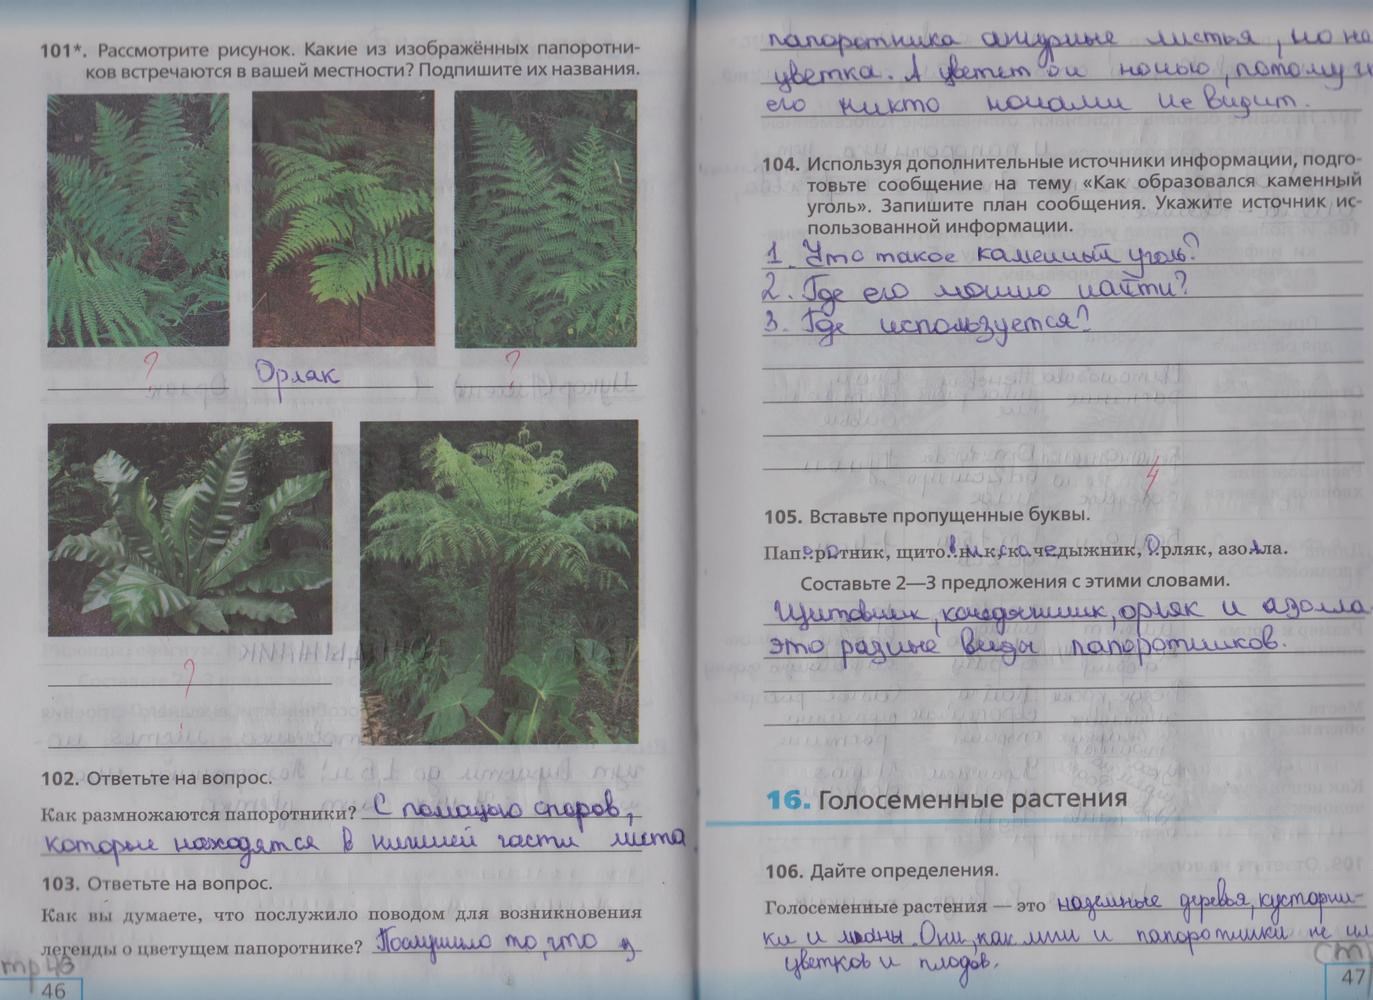 101*. Рассмотрите рисунок. Какие из изображённых папоротни-
ков встречаются в вашей местности? Подпишите их названия.
?
Орляк
?
?
102. Ответьте на вопрос.
Как размножаются папоротники? С помощью споров,
которые находятся в нижней части листа.
103. Ответьте на вопрос.
Как вы думаете, что послужило поводом для возникновения
легенды о цветущем папоротнике? Послужило то, что у
стр 43
46
папоротника ажурные листья, но на
цветка. А цветёт он ночью, потому
его никто ночами не видит.
104. Используя дополнительные источники информации, подго-
товьте сообщение на тему «Как образовался каменный
уголь». Запишите план сообщения. Укажите источник ис-
пользованной информации.
1. Что такое каменный уголь?
2. Где его можно найти?
3. Где используется?
4
105. Вставьте пропущенные буквы.
Папоротник, щитовник, кочедыжник, Орляк, азолла.
Составьте 2—3 предложения с этими словами.
Щитовник, кочедыжник, орляк и азолла
это разные виды папоротников.
16. Голосеменные растения
106. Дайте определения.
Голосеменные растения — это наземные деревья, кустарни-
ки и лианы. Они, как мхи и папоротники не
цветков и плодов.
47